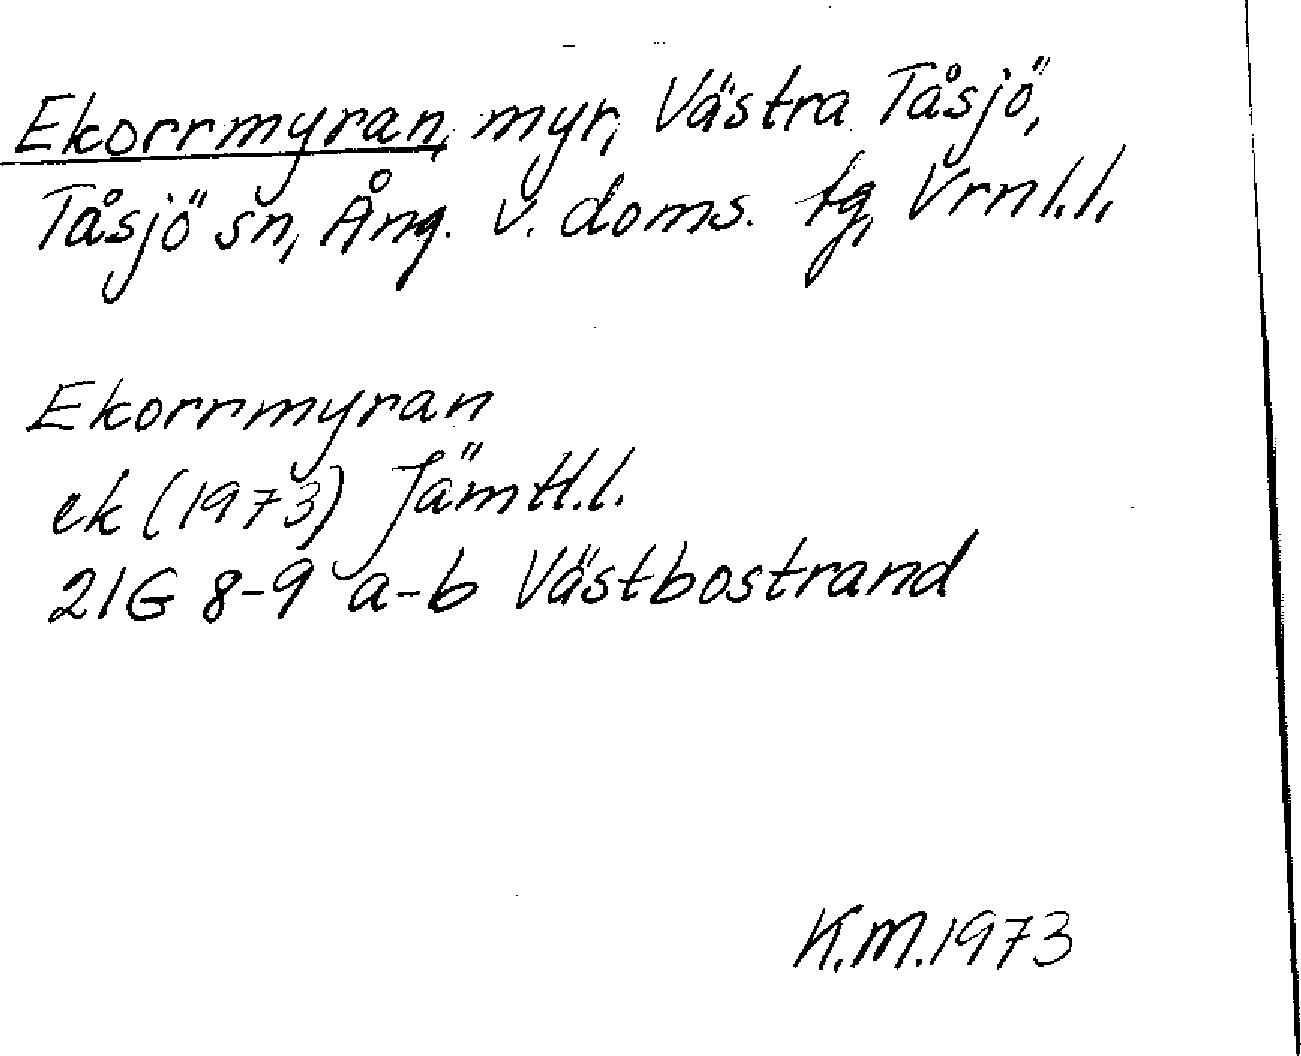 Ekorrmyran, myr, Västra Tåsjö,
Tåsjö sn, Ång. v. doms. tg, Vrnl.l.
Ekorrmyran
ek (1973) Jämtl.l.
21G 8-9 a-b Västbostrand
K.M.1973